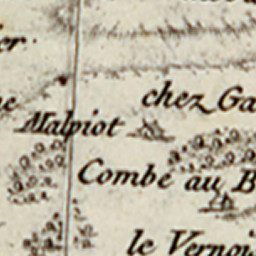 er.
chez Ga
Malpiot
Combe au B
le Vernoi